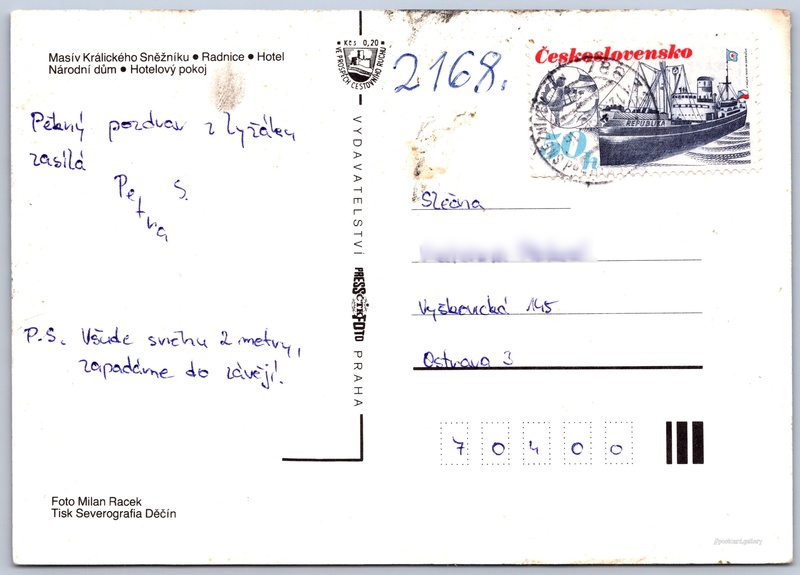 Masív Králického Sněžníku ● Radnice ● Hotel
Národní dům ● Hotelový pokoj
Pěkný pozdrav z lyžáku
zasílá
Petra S.
P.S. Všude sněhu 2 metry,
zapadáme do závějí!
Foto Milan Racek
Tisk Severografia Děčín
Kčs 0,20
VE PROSPĚCH CESTOVNÍHO RUCHU
VYDAVATELSTVÍ PRESSFOTO PRAHA
ČTK
2168.
Československo
REPUBLIKA
50h
Slečna
Vyškovická 145
Ostrava 3
70400